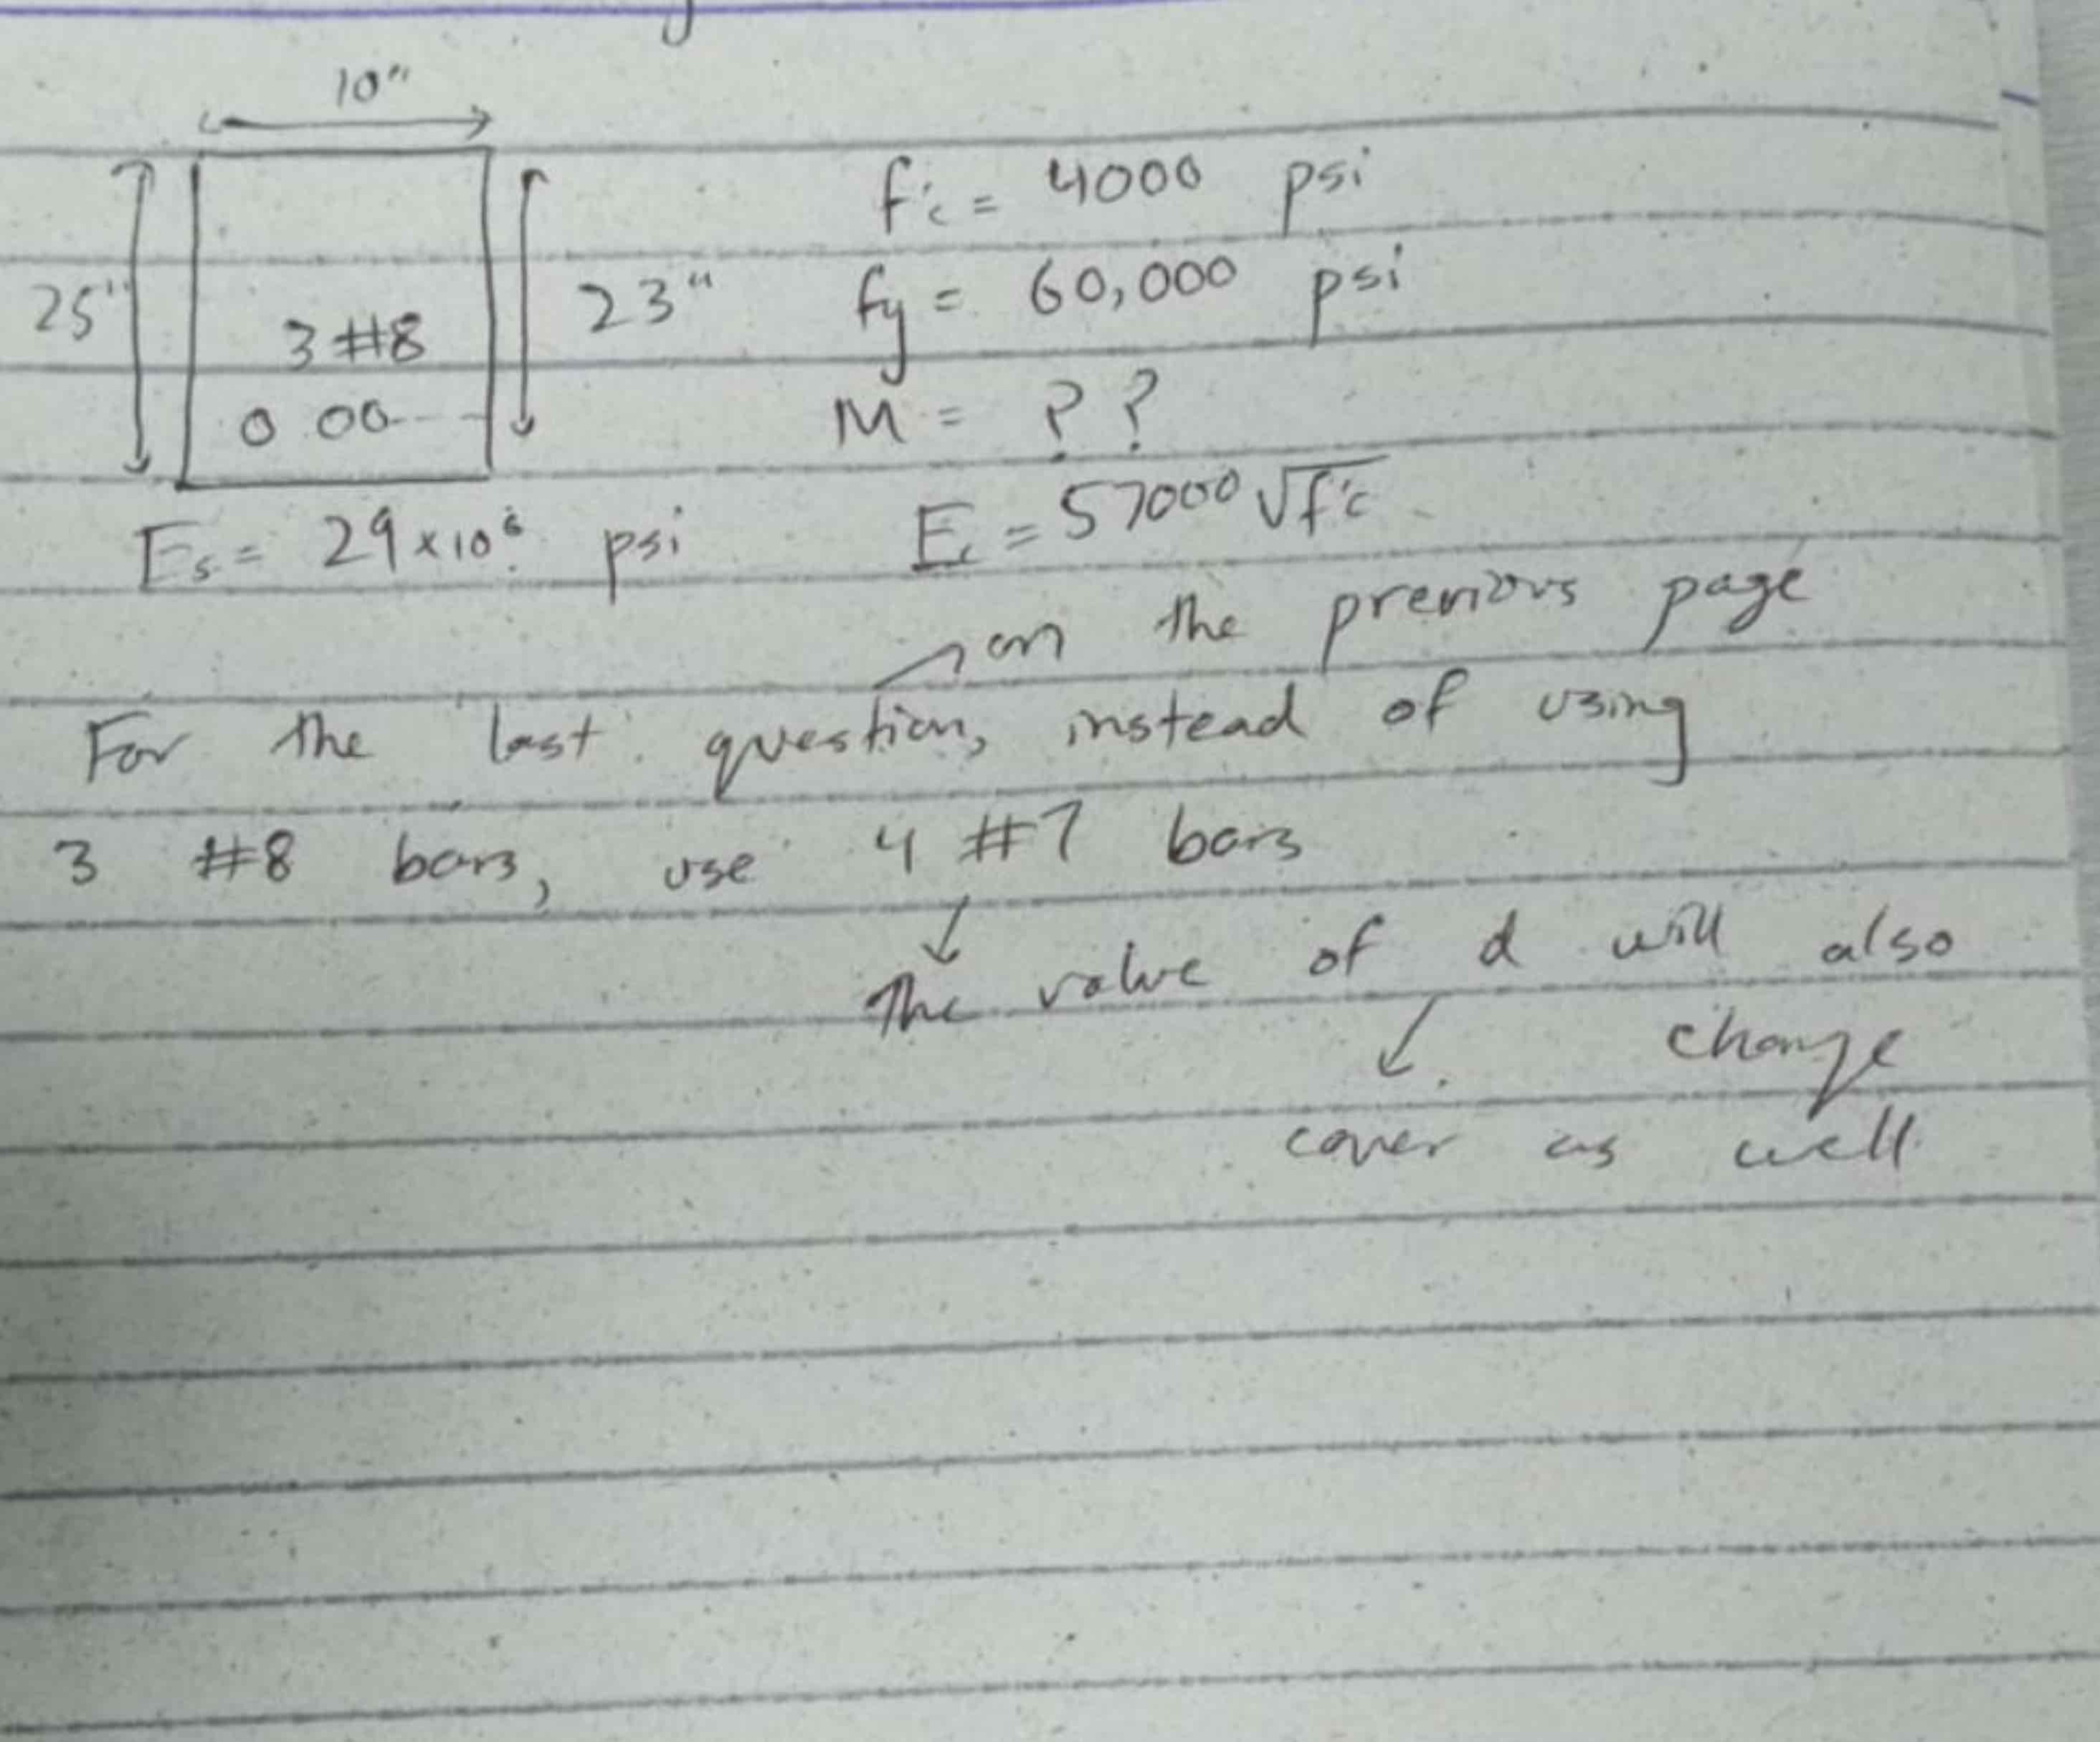 10"
f'c = 4000 psi
25" 23" fy = 60,000 psi
3 #8
M = ??
Es = 29 x 10⁶ psi Ec = 57000 √f'c
on the previous page
For the last question, instead of using
3 #8 bars, use 4 #7 bars
The value of d will also
change
cover as well